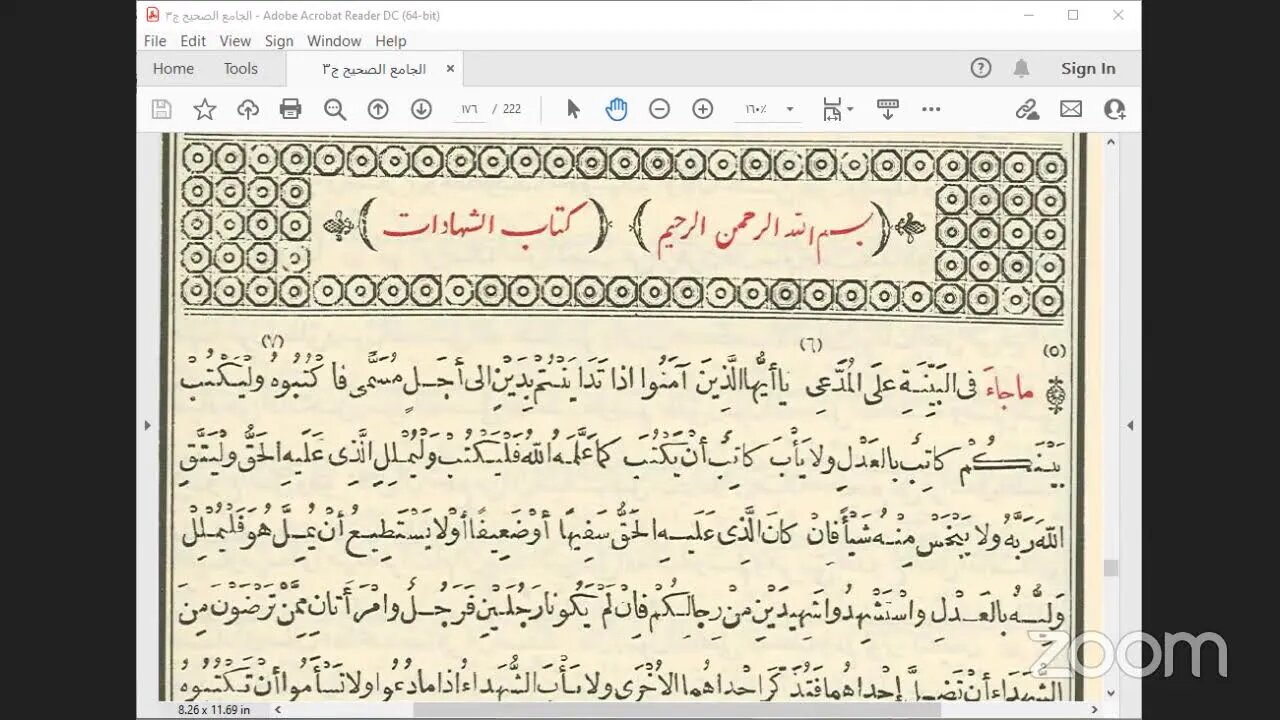 الجامع الصحيح ج٣ - Adobe Acrobat Reader DC (64-bit)
File Edit View Sign Window Help
Home Tools الجامع الصحيح ج٣ × Sign In
١٧٦ / 222 ١٦٠٪
(بسم الله الرحمن الرحيم) (كتاب الشهادات)
(٥) (٦) (٧)
ماجاءَ فى البَيِّنَةِ عَلَى المُدَّعِى ياأيُّها الَّذِينَ آمَنُوا اذا تَدَايَنْتُمْ بِدَيْنٍ الى أجَلٍ مُسَمًّى فا كْتُبُوهُ ولْيَكْتُبْ
بَيْنَكُمْ كاتِبٌ بالعَدْلِ ولا يَأْبَ كاتِبٌ أنْ يَكْتُبَ كما عَلَّمَهُ اللهُ فَلْيَكْتُبْ ولْيُمْلِلِ الَّذِى عَلَيهِ الحَقُّ ولْيَتَّقِ
اللهَ رَبَّهُ ولا يَبْخَسْ مِنْهُ شَيْأً فانْ كانَ الَّذِى عَلَيهِ الحَقُّ سَفِيهًا أوْ ضَعِيفًا أوْ لا يَسْتَطِيعُ أنْ يُمِلَّ هُوَ فَلْيُمْلِلْ
وَلِيُّهُ بالعَدْلِ واسْتَشْهِدُوا شَهِيدَيْنِ مِنْ رِجالِكُمْ فانْ لَمْ يَكُونا رَجُلَيْنِ فَرَجُلٌ وامْرَأَتانِ مِمَّنْ تَرْضَوْنَ مِنَ
الشُّهَدَاءِ أنْ تَضِلَّ إحْداهُما فَتُذَكِّرَ احْداهُما الأُخْرَى ولا يَأْبَ الشُّهَداءُ اذا ما دُعُوا ولا تَسْأَمُوا أنْ تَكْتُبُوهُ
8.26 x 11.69 in
zoom